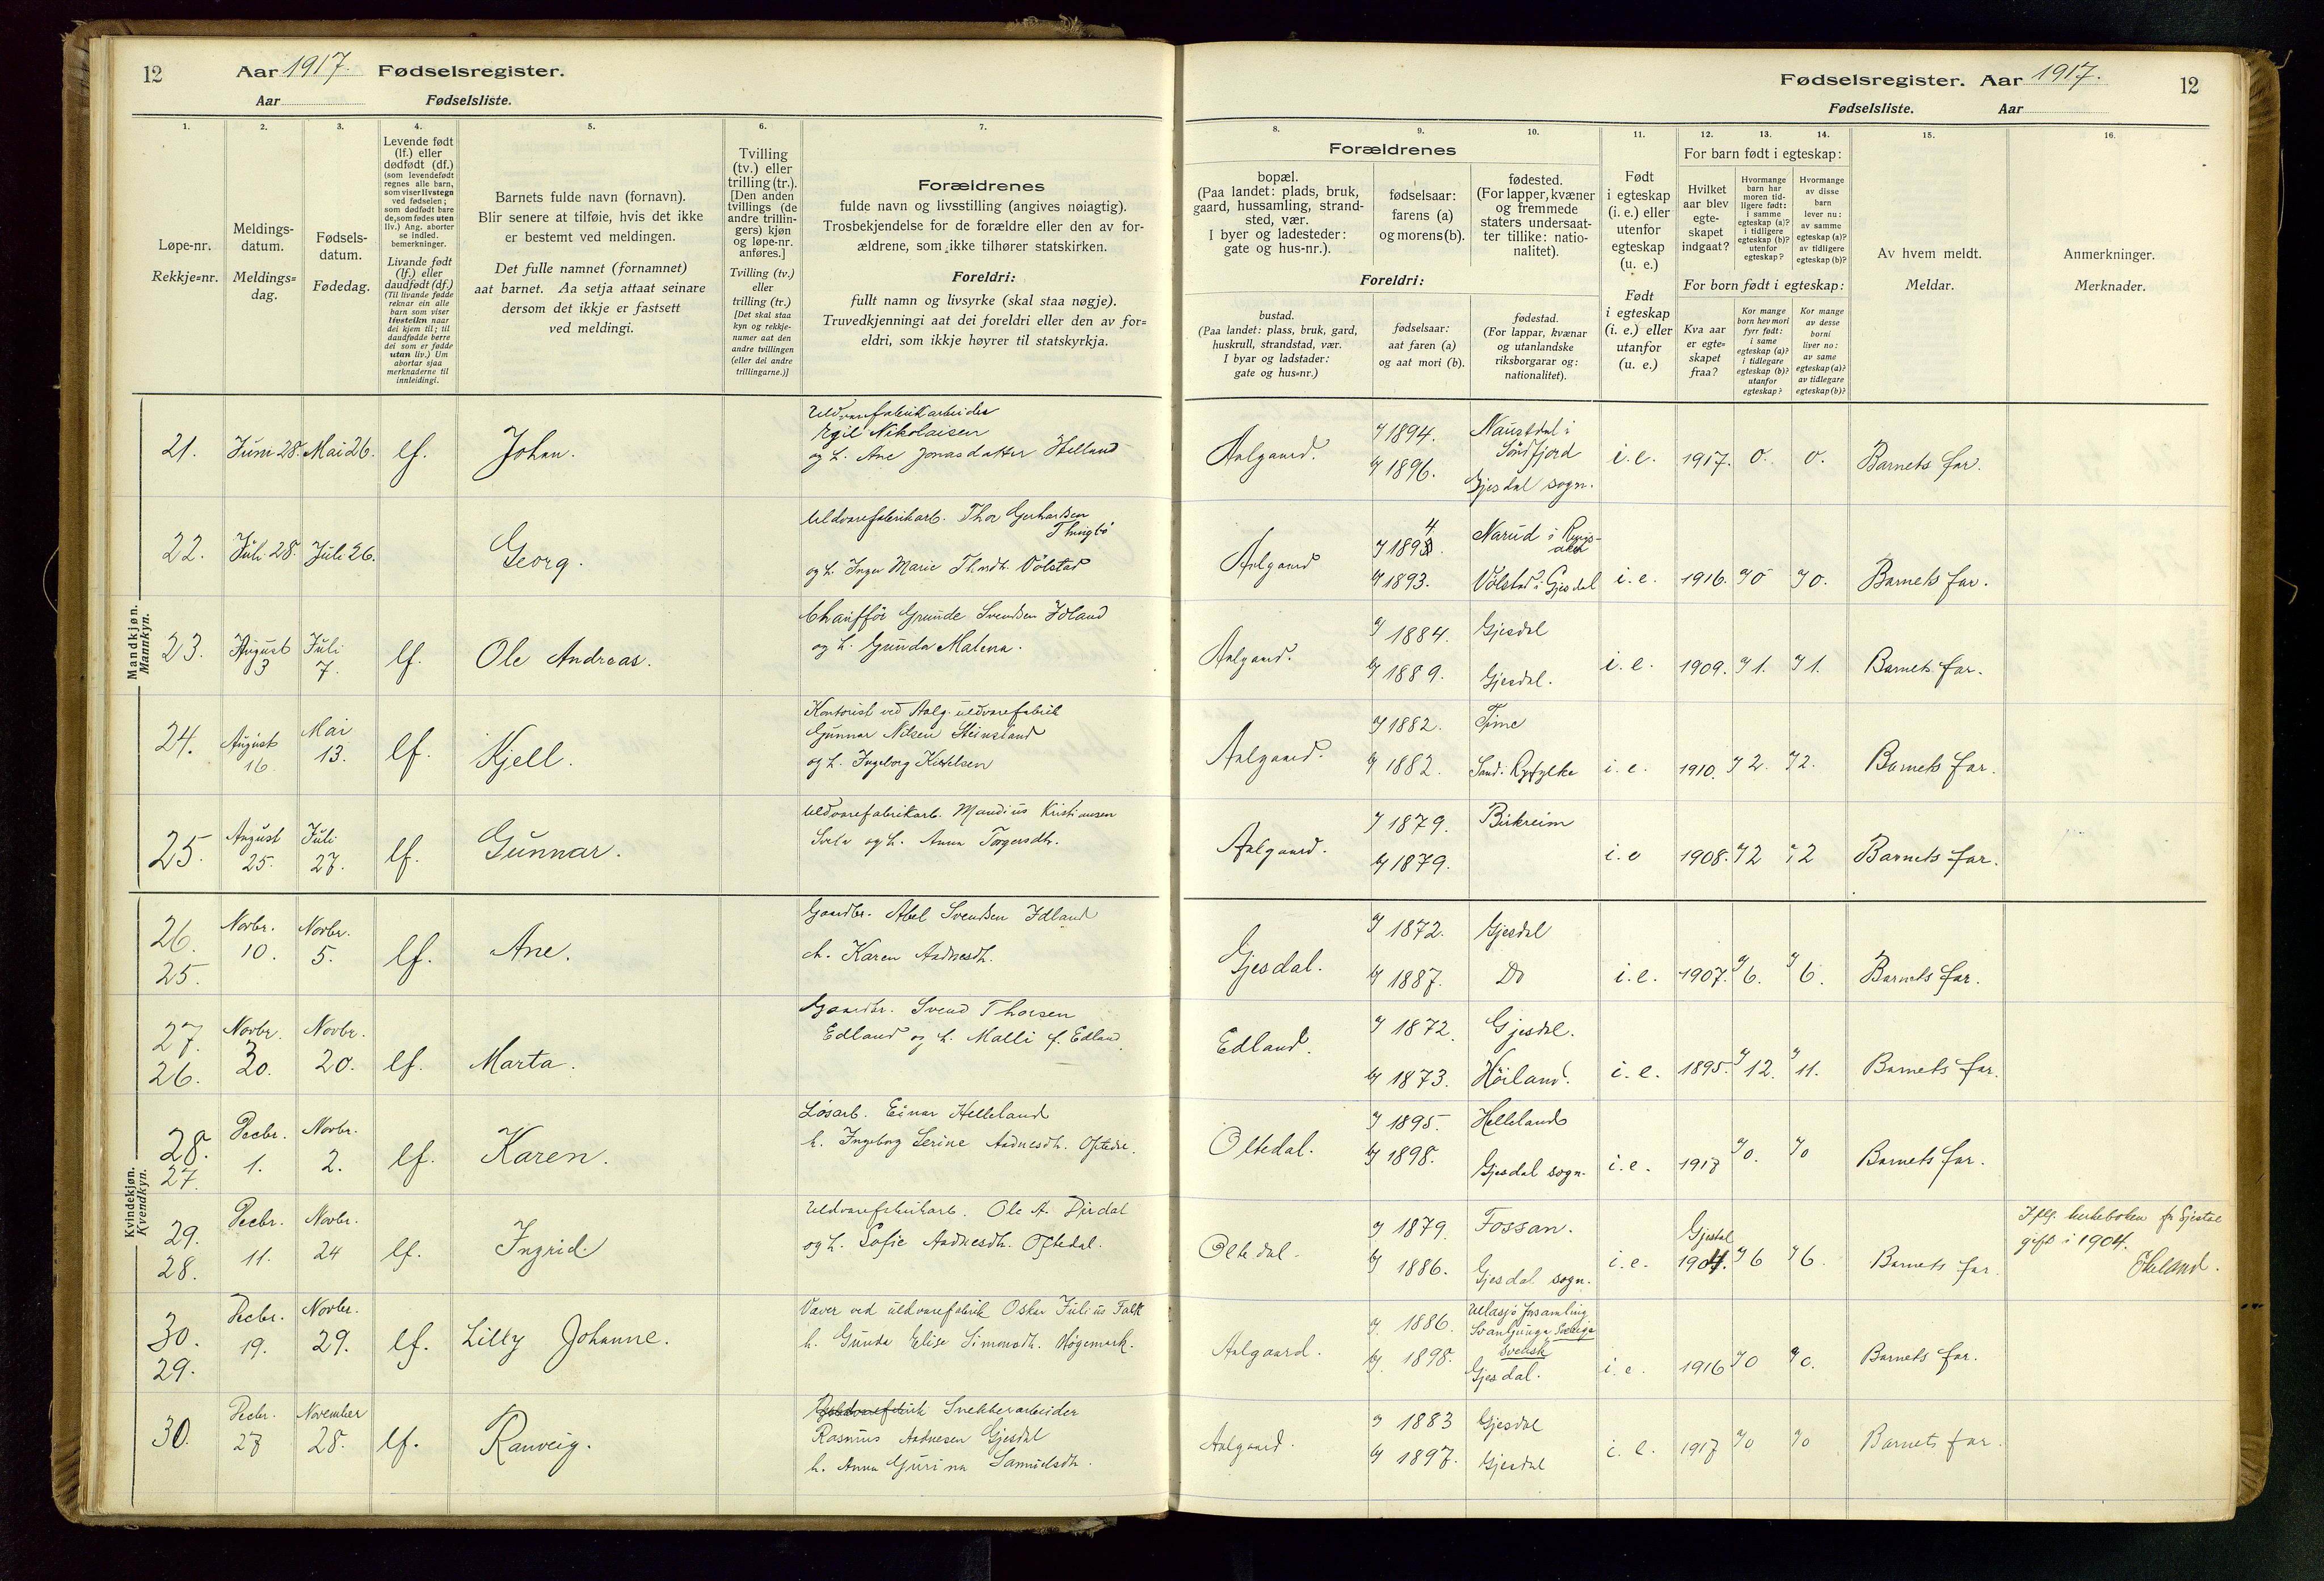 12
Aar 1917. Fødselsregister.
Aar Fødselsliste.
Fødselsregister. Aar 1917.
12
Fødselsliste. Aar
1.
Løpe-nr.
Rekkje=nr.
2.
Meldings-
datum.
Meldings=
dag.
3.
Fødsels-
datum.
Fødedag.
4.
Levende født
(lf.) eller
dødfødt (df.)
(som levendefødt
regnes alle barn,
som viser livstegn
ved fødselen;
som dødfødt bare
de, som fødes uten
liv.) Ang. aborter
se indled.
bemerkninger.
Livande født
(lf.) eller
daudfødt (df.)
(Til livande fødde
reknar ein alle
barn som viser
livsteikn naar
dei kjem til; til
daudfødde berre
dei som er fødde
utan liv.) Um
abortar sjaa
merknaderne til
innleidingi.
5.
Barnets fulde navn (fornavn).
Blir senere at tilføie, hvis det ikke
er bestemt ved meldingen.
Det fulle namnet (fornamnet)
aat barnet. Aa setja attaat seinare
dersom det ikkje er fastsett
ved meldingi.
6.
Tvilling
(tv.) eller
trilling (tr.).
[Den anden
tvillings (de
andre trillin-
gers) kjøn
og løpe-nr.
anføres.]
Tvilling (tv.)
eller
trilling (tr.)
[Det skal staa
kyn og rekkje-
numer aat den
andre tvillingen
(eller dei andre
trillingarne.)]
7.
Forældrenes
fulde navn og livsstilling (angives nøiagtig).
Trosbekjendelse for de forældre eller den av for-
ældrene, som ikke tilhører statskirken.
Foreldri:
fullt namn og livsyrke (skal staa nøgje).
Truvedkjenningi aat dei foreldri eller den av for=
eldri, som ikkje høyrer til statskyrkja.
8.
Forældrenes
bopæl.
(Paa landet: plads, bruk,
gaard, hussamling, strand-
sted, vær.
I byer og ladesteder:
gate og hus-nr.).
Foreldri:
bustad.
(Paa landet: plass, bruk, gard,
huskrull, strandstad, vær.
I byar og ladstader:
gate og hus=nr.)
9.
fødselsaar:
farens (a)
og morens (b).
fødselsaar:
aat faren (a)
og aat mori (b).
10.
fødested.
(For lapper, kvæner
og fremmede
staters undersaat-
ter tillike: natio-
nalitet).
fødestad.
(For lappar, kvænar
og utanlandske
riksborgarar og:
nationalitet).
11.
Født
i egteskap
(i. e.) eller
utenfor
egteskap
(u. e.)
Født
i egteskap
(i. e.) eller
utanfor
(u. e.)
12. 13. 14.
For barn født i egteskap:
Hvilket
aar blev
egte-
skapet
indgaat?
Hvormange
barn har
moren tid-
ligere født:
i samme
egteskap (a)?
i tidligere
egteskap (b)?
utenfor
egteskap?
Hvormange
av disse
barn
lever nu:
av samme
egteskap (a)?
av tidligere
egteskap (b)?
For born født i egteskap:
Kva aar
er egte=
skapet
fraa?
Kor mange
born hev mori
fyrr født:
i same
egteskap (a)?
i tidlegare
egteskap (b)?
utanfor
egteskap?
Kor mange
av desse
borni
liver no:
av same
egteskap (a)?
av tidlegare
egteskap (b)?
15.
Av hvem meldt.
Meldar.
16.
Anmerkninger.
Merknader.
Mandkjøn.
Mannkyn.
21. Juni 28. Mai 26. lf. Johan.
Uldvarefabrikarbeider
Egil Nikolaisen
og h. Ane Jonasdatter Helland
Aalgaard. a) 1894. b) 1896.
Naustdal i
Søndfjord
Gjesdal sogn.
i. e. 1917. 0. 0. Barnets far.
22. Juli 28. Juli 26. Georg.
Uldvarefabrikarb. Thor Gerhardsen
og h. Inger Marie Thordh. Vølstad
Aalgaard a) 1894. b) 1893.
Narud i
Vølstad i Gjesdal
i. e. 1916. a) 0 a) 0. Barnets far.
23. August 3 Juli 7. lf. Ole Andreas.
Chauffør Grunde Svendsen Idland
og h. Gunda Malena.
Aalgaard. a) 1884. b) 1889.
Gjesdal
Gjesdal.
i. e. 1909. a) 1. a) 1. Barnets far.
24. August 16 Mai 13. lf. Kjell.
Kontorist ved Aalg. uldvarefabrik
Gunnar Nilsen Steinsland
og h. Ingeborg
Aalgaard. a) 1882. b) 1882.
Time
Sand i Ryfylke
i. e. 1910. a) 2. a) 2. Barnets far.
25. August 25. Juli 27. lf. Gunnar.
Uldvarefabrikarb. Mandius Kristiansen
Svela og h. Anna Torgersdh.
Aalgaard. a) 1879. b) 1879.
Birkreim
i. e 1908. a) 2 a) 2 Barnets far.
Kvindekjøn.
Kvendkyn.
26. 25. Novbr. 10. Novbr. 5. lf. Ane.
Gaardbr. Abel Svendsen Idland
h. Karen Aadnesdh.
Gjesdal. a) 1872. b) 1887.
Gjesdal
Do
i. e. 1907. a) 6. a) 6. Barnets far.
27. 26. Novbr. 30. Novbr. 20. lf. Marta.
Gaardbr. Svend Thorsen
Edland og h. Malli f. Edland.
Edland. a) 1872. b) 1873.
Gjesdal.
Høiland.
i. e. 1895. a) 12. a) 11. Barnets far.
28. 27. Decbr. 1. Novbr. 2. lf. Karen.
Løsarb. Einar Helleland
h. Ingeborg Serine Aadnesdh. Oftedal.
Oltedal. a) 1895. b) 1898.
Helleland
Gjesdal sogn.
i. e. 1917 a) 0. a) 0 Barnets far.
29. 28. Decbr. 11. Novbr. 24 lf. Ingrid.
Uldvarefabrikarb. Ole A. Dirdal
og h. Sofie Aadnesdh. Oftedal.
Oltedal. a) 1879. b) 1886.
Fossan.
Gjesdal sogn.
i. e. Gjesdal 1904. a) 6 a) 6. Barnets far
Iflg. kirkeboken for Gjesdal
gift i 1904.
30. 29. Decbr. 19. Novbr. 29. lf. Lilly Johanne.
Væver ved uldvarefabrik Oskar Julius Falk
h. Gunda Elise Simonsdh. Høgemark.
Aalgaard. a) 1886. b) 1898.
Ullasjö forsamling
Svanljunga Sverige
Svensk
Gjesdal.
i. e. 1916 a) 0 a) 0. Barnets far.
30. Decbr. 27 November 28. lf. Ranveig.
Snekkerarbeider
Rasmus Aadnesen Gjesdal
h. Anna Gurina Samuelsdh.
Aalgaard. a) 1883 b) 1897.
Gjesdal
Gjesdal
i. e. 1917 a) 0 a) 0 Barnets far.